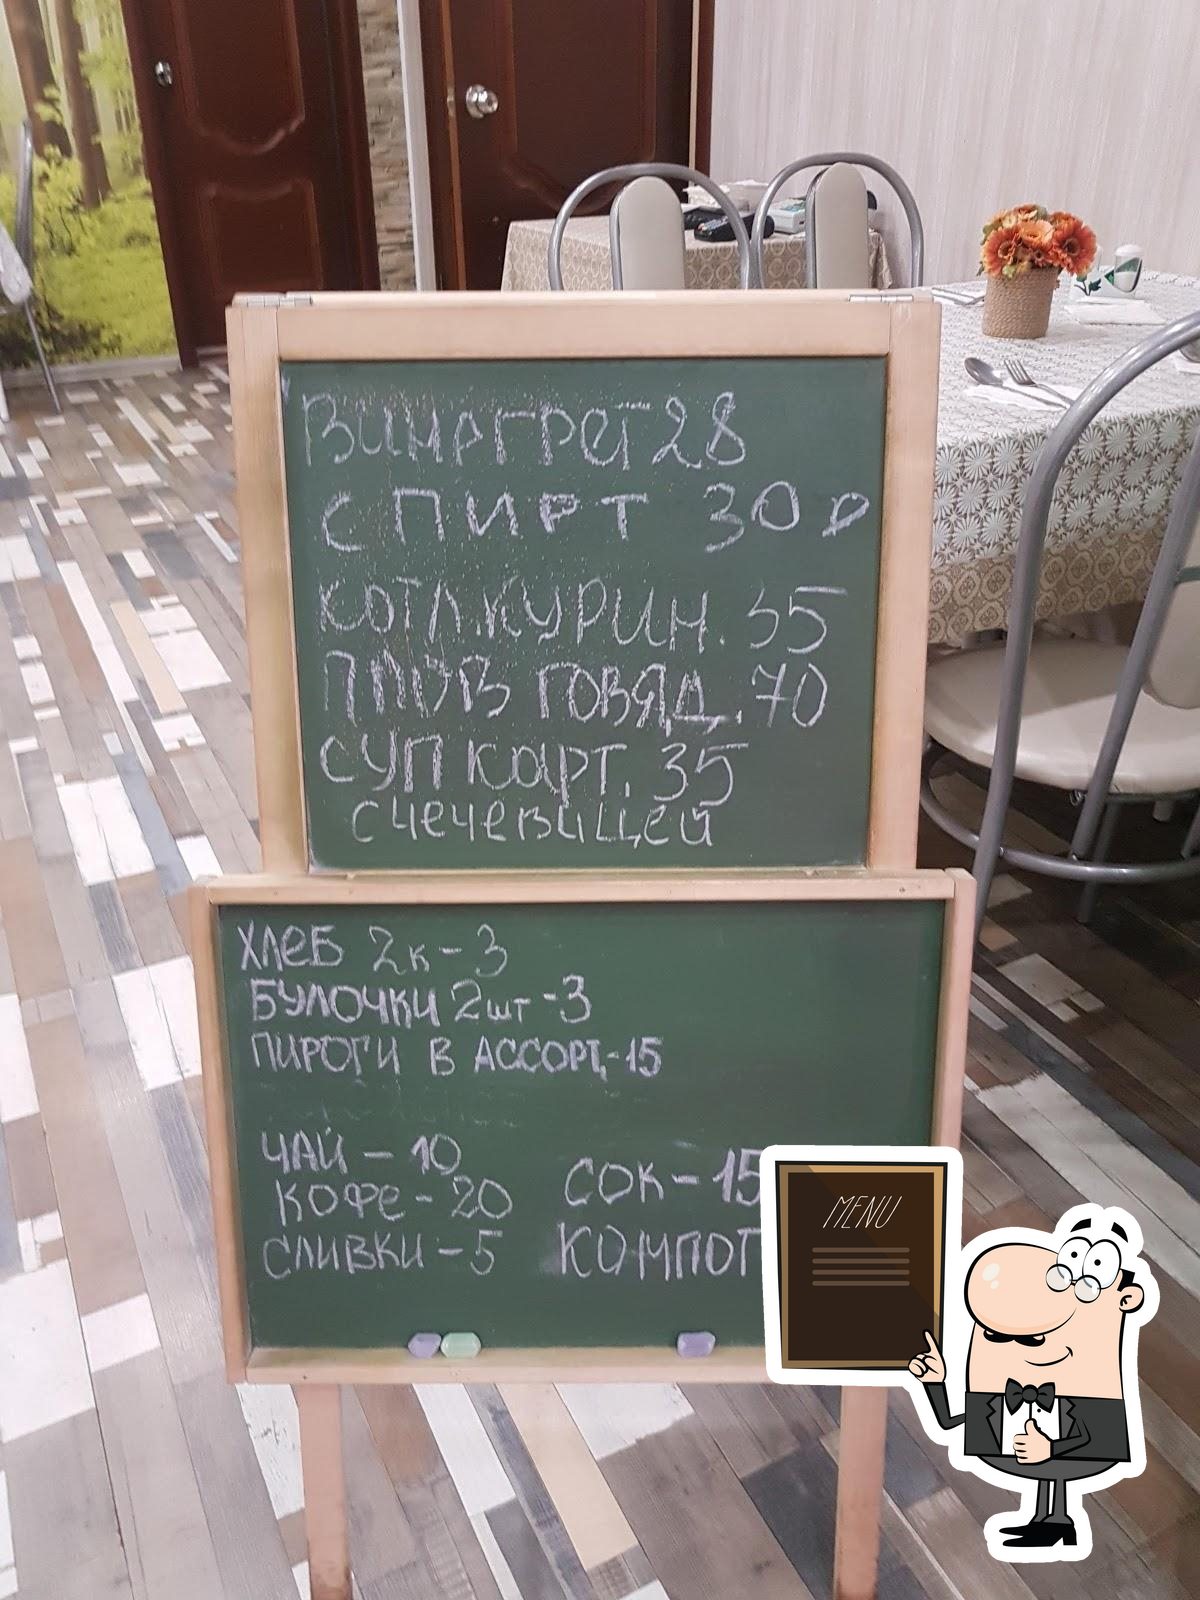 ВИНАГРЕТ 28
СПИРТ 30 Р
КОТЛ.КУРИН. 35
ПЛОВ ГОВЯД. 70
СУП КАРТ. 35
С ЧЕЧЕВИЦЕЙ
ХЛЕБ 2к-3
БУЛОЧКИ 2шт-3
ПИРОГИ В АССОРТ.-15
ЧАЙ - 10
КОФЕ - 20
СЛИВКИ - 5
СОК - 15
КОМПОТ
MENU